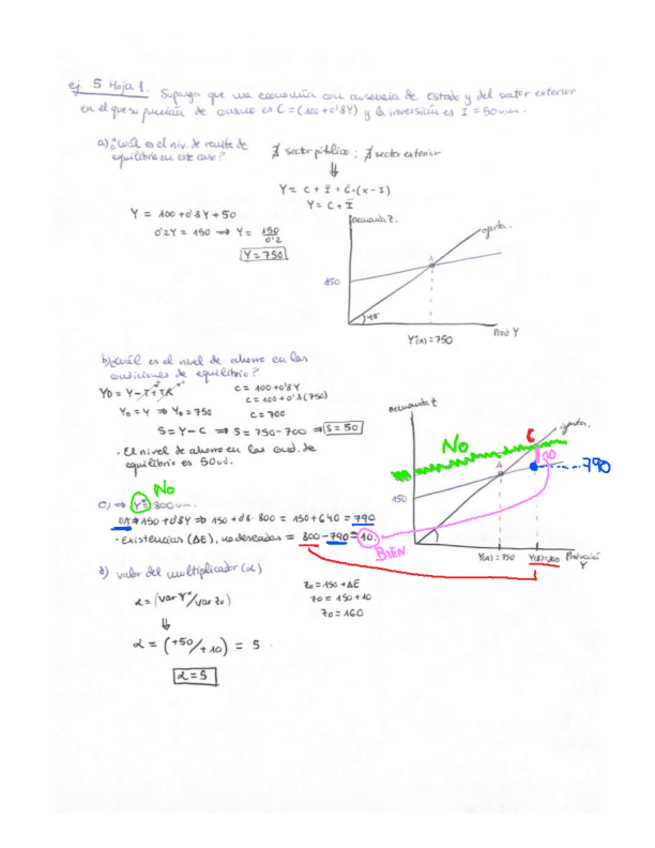 ej 5 Hoja 1. Suponga que una economía con ausencia de Estado y del sector exterior
en el que su función de consumo es C = (100+0'8Y) y la inversión es I = 50 u.m.
a) ¿Cuál es el niv. de renta de
equilibrio en este caso?
∄ sector público ; ∄ sector exterior
⇓
Y = C + I̅ + G + (X - I)
Y = C + I̅
Y = 100 + 0'8Y + 50
0'2Y = 150 ⇒ Y = 150/0'2
Y = 750
demanda Z.
oferta.
A
150
45
Y(A) = 750
Y
b) ¿Cuál es el nivel de ahorro en las
condiciones de equilibrio?
YD = Y - T + TR
YD = Y ⇒ YD = 750
C = 100 + 0'8Y
C = 100 + 0'8(750)
C = 700
S = Y - C ⇒ S = 750 - 700 ⇒ S = 50
· El nivel de ahorro en las cond. de
equilibrio es 50 ud.
demanda Z
oferta.
No
C
A
10
790
150
Y(A) = 750
Y(B) = 800
Producción
Y
No
c) ⇒ Y = 800 u.m.
DA = 150 + 0'8Y ⇒ 150 + 0'8 · 800 = 150 + 640 = 790
· Existencias (ΔE), no deseadas = 800 - 790 = 10.
BIEN
d) valor del multiplicador (α)
α = (var Y*/var Zo)
⇓
α = (+50/+10) = 5
α = 5
Zo = 150 + ΔE
Zo = 150 + 10
Zo = 160